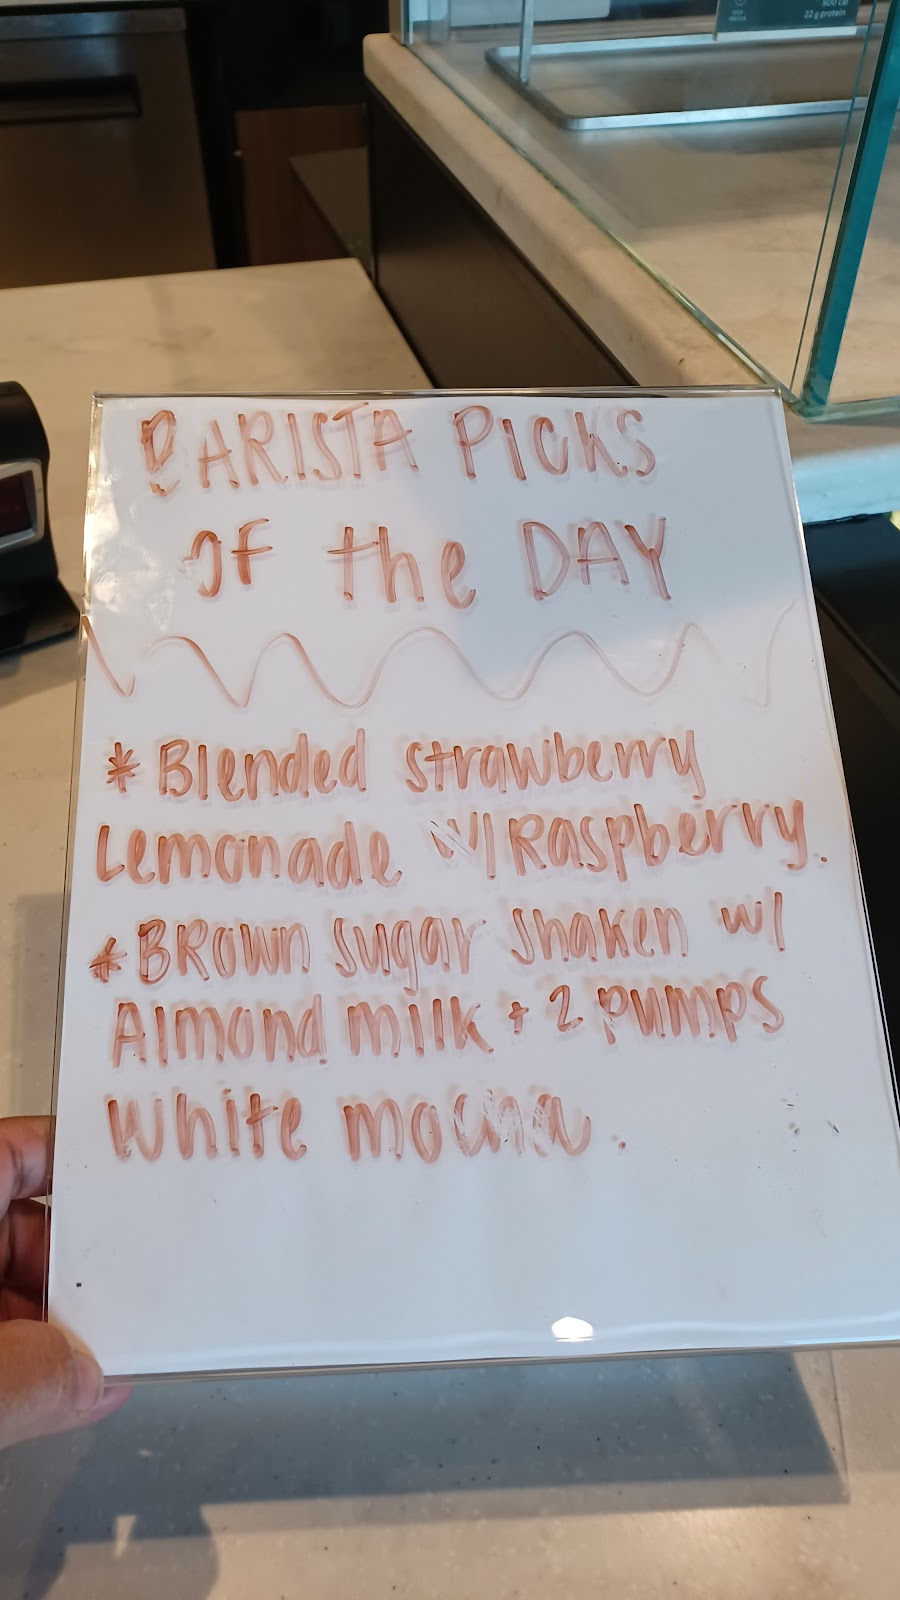 500 cal
22 g protein
BARISTA PICKS
OF the DAY
* Blended strawberry
Lemonade w/ Raspberry.
* BROWN sugar shaken w/
Almond milk + 2 pumps
White mocha.